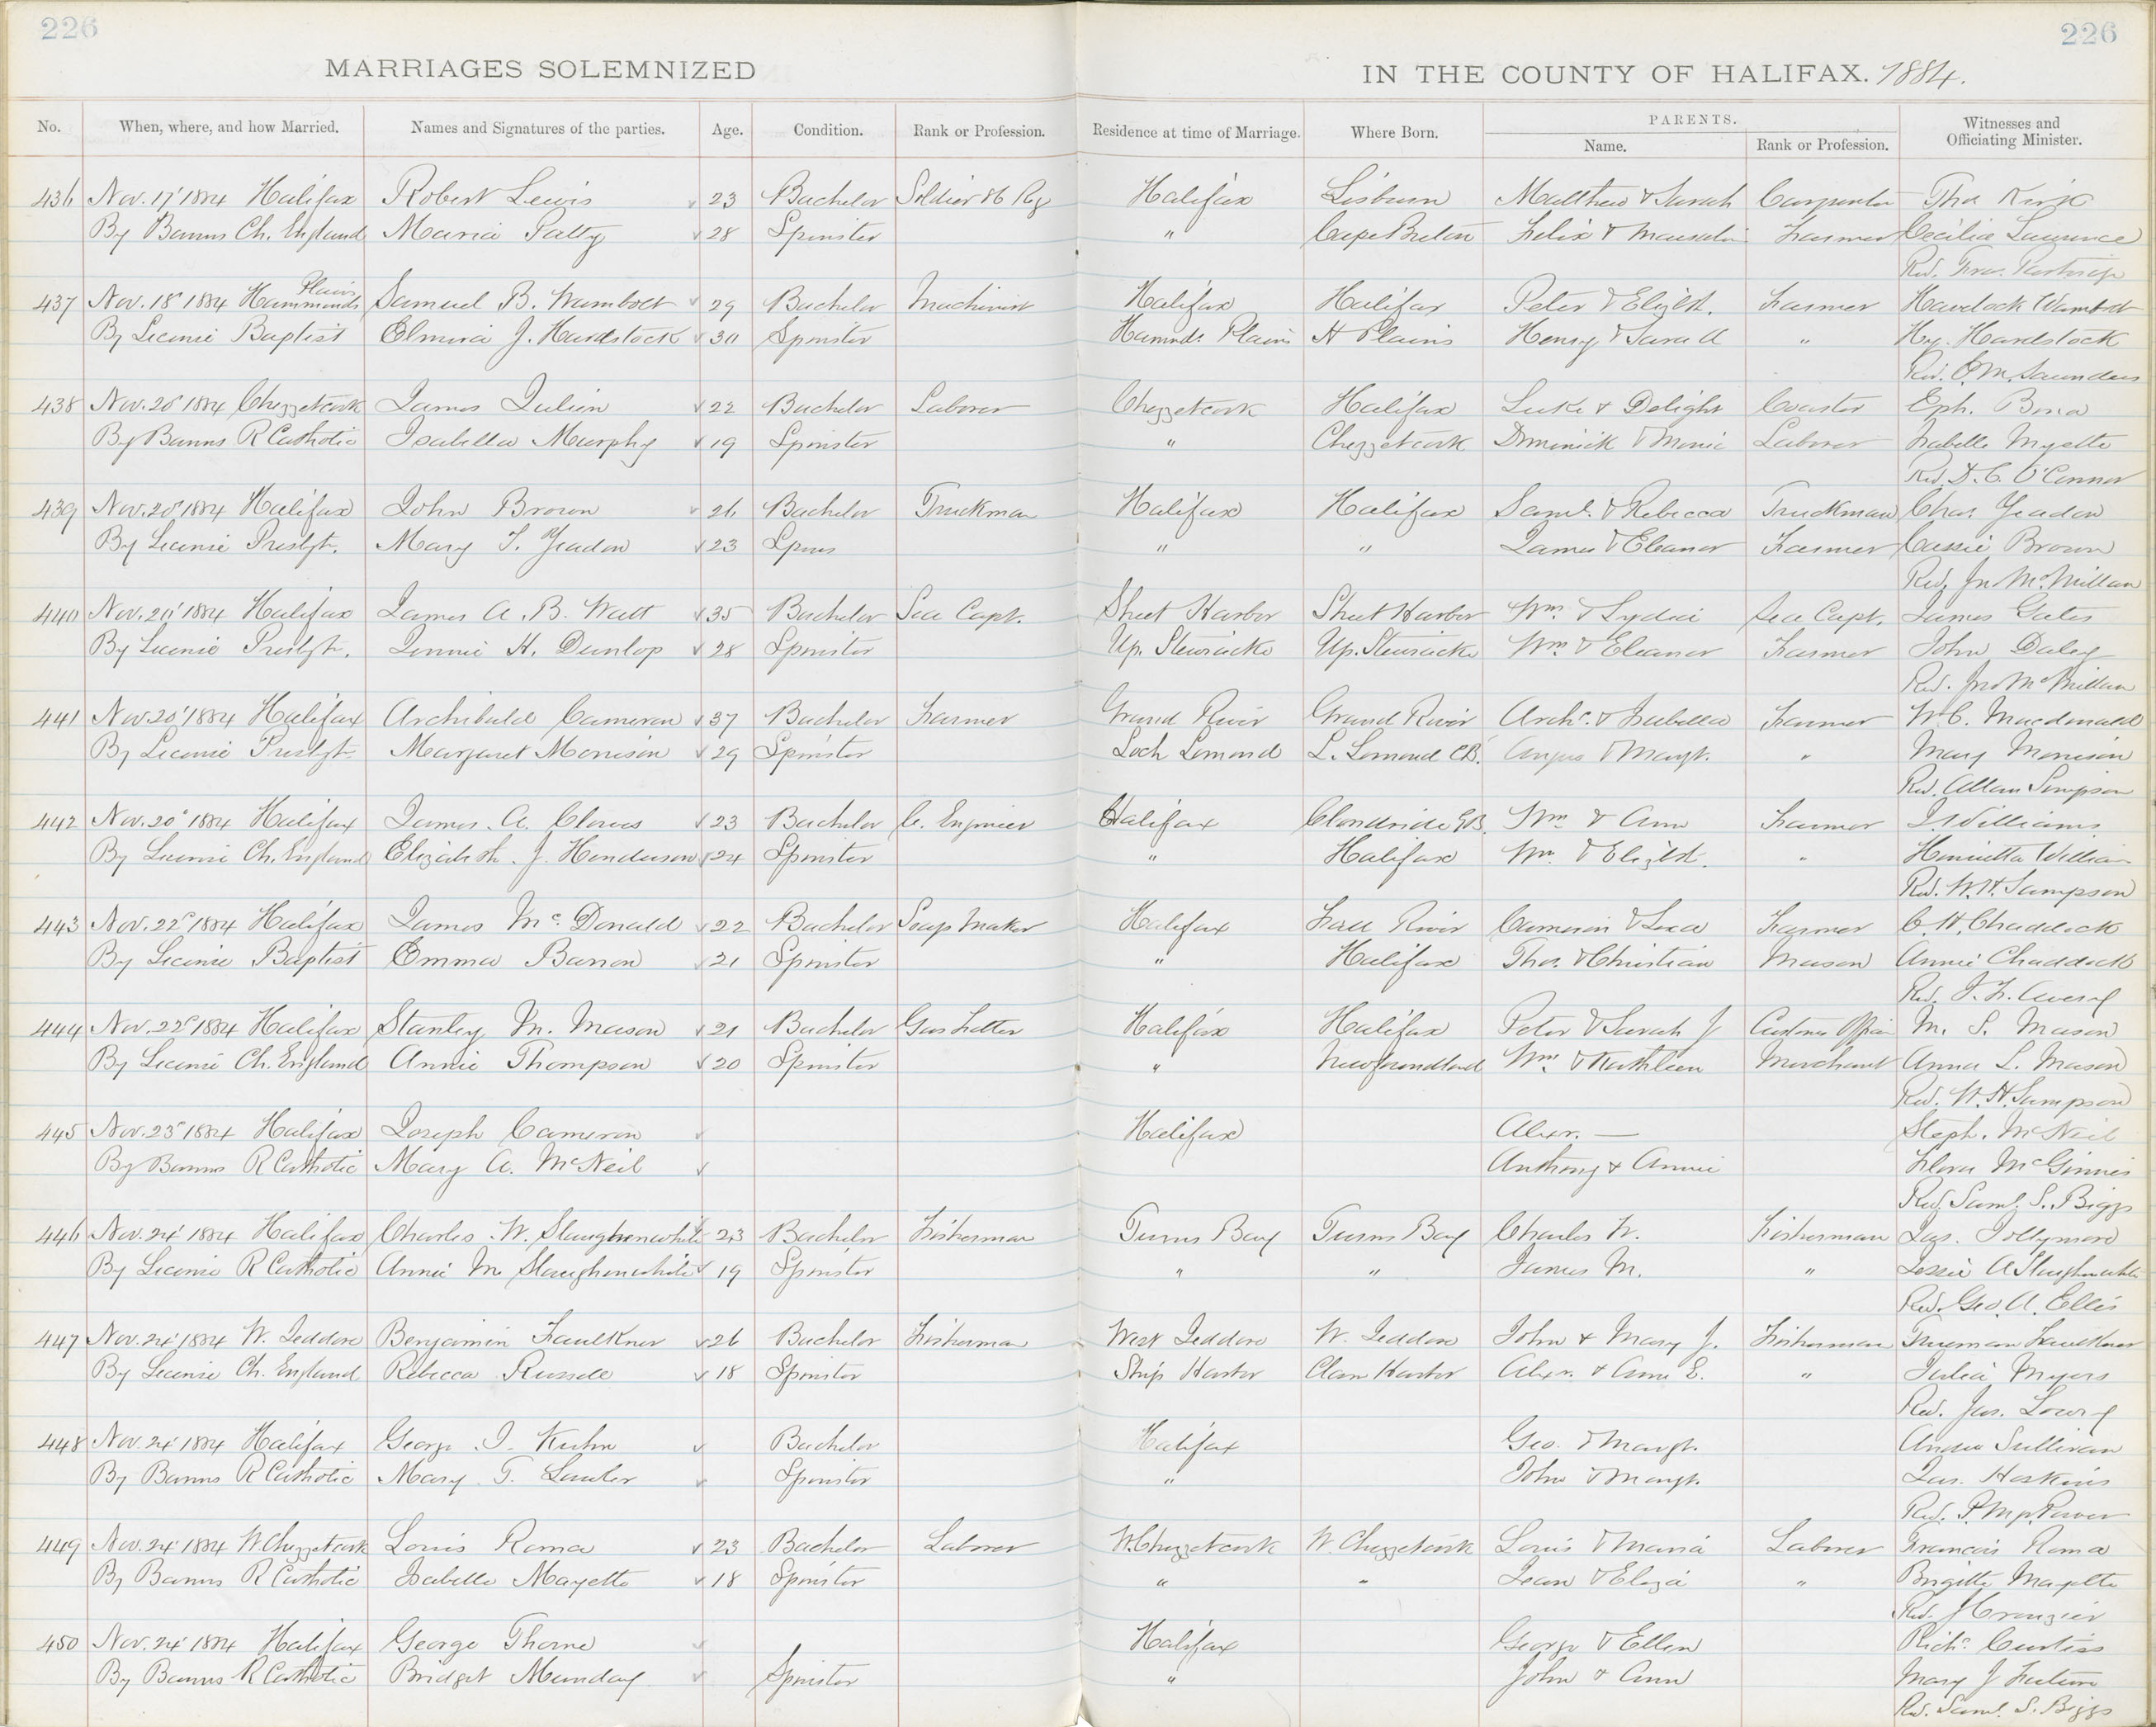 226 226
MARRIAGES SOLEMNIZED IN THE COUNTY OF HALIFAX. 1884.
No. When, where, and how Married. Names and Signatures of the parties. Age. Condition. Rank or Profession. Residence at time of Marriage. Where Born. PARENTS. Name. Rank or Profession. Witnesses and Officiating Minister.
436 Nov. 17' 1884 Halifax Robert Lewis 23 Bachelor Soldier 86 Reg Halifax Lisburn Matthew & Sarah Carpenter Tho. King
By Banns Ch. England Maria Patty 28 Spinster " Cape Breton Felix & Farmer Cecilia Laurence
Rev. Fra. Partridge
Plains
437 Nov. 18' 1884 Hammonds Samuel B. Wambolt 29 Bachelor Machinist Halifax Halifax Peter & Elizbt. Farmer Havelock Wambolt
By Licenie Baptist Elmira J. Handstock 30 Spinster Hamnds. Plains H Plains Henry & Sara A " Hy. Handstock
Rev. E. M. Saunders
438 Nov. 20' 1884 Chezzetcook James Julien 22 Bachelor Laborer Chezzetcook Halifax Luke & Delight Coaster Eph. Bona
By Banns R Catholic Isabella Murphy 19 Spinster " Chezzetcook Dominick & Monic Laborer Isabelle Myette
Rev. D. C. O'Connor
439 Nov. 20' 1884 Halifax John Brown 26 Bachelor Truckman Halifax Halifax Saml. & Rebecca Truckman Chas. Yeadon
By Licenie Presbyt. Mary S. Yeadon 23 Spins " " James & Eleanor Farmer Cassie Brown
Rev. Jn McMillan
440 Nov. 20' 1884 Halifax James A. B. Watt 35 Bachelor Sea Capt. Sheet Harbor Sheet Harbor Wm. & Lydia Sea Capt. James Gates
By Licenie Presbyt. Jennie H. Dunlop 28 Spinster Up. Stewiacke Up. Stewiacke Wm & Eleanor Farmer John Daley
Rev. Jno McMillan
441 Nov. 20' 1884 Halifax Archibald Cameron 37 Bachelor Farmer Grand River Grand River Archd. & Isabella Farmer W. C. Macdonald
By Licenie Presbyt. Margaret Morrison 29 Spinster Loch Lomond L. Lomond CB. Angus & Margt. " Mary Morrison
Rev. Allan Simpson
442 Nov. 20' 1884 Halifax James A. Clowes 23 Bachelor C. Engineer Halifax G.B. Wm & Ann Farmer J. Williams
By Licenie Ch. England Elizabeth J. Henderson 24 Spinster " Halifax Wm. & Elizbt. " Henrietta William
Rev. W. H. Sampson
443 Nov. 22' 1884 Halifax James McDonald 22 Bachelor Soap Maker Halifax Fall River Cameron & Farmer C. H. Chaddock
By Licenie Baptist Emma Barron 21 Spinster " Halifax Tho. & Christian Mason Annie Chaddock
Rev. J. F. Avery
444 Nov. 22' 1884 Halifax Stanley M. Mason 21 Bachelor Gas Fitter Halifax Halifax Peter & Sarah J Customs M. S. Mason
By Licenie Ch. England Annie Thompson 20 Spinster " Newfoundland Wm. & Kathleen Merchant Anna L. Mason
Rev. W. H. Sampson
445 Nov. 23' 1884 Halifax Joseph Cameron Halifax Alexr. — Steph. McNeil
By Banns R Catholic Mary A. McNeil Anthony & Annie Flora McGinnis
Rev. Saml. S. Biggs
446 Nov. 24' 1884 Halifax Charles W. Slaughenwhite 23 Bachelor Fisherman Turns Bay Turns Bay Charles W. Fisherman Jas. Jollymore
By Licenie R Catholic Annie M. Slaughenwhite 19 Spinster " " James M. " Jessie A Slaughenwhite
Rev. Geo. A. Ellis
447 Nov. 24' 1884 W. Jeddore Benjamin Faulkner 26 Bachelor Fisherman West Jeddore W. Jeddore John & Mary J. Fisherman Freeman Faulkner
By Licenie Ch. England Rebecca Russell 18 Spinster Ship Harbor Clam Harbor Alexr. & Ann E. " Julia Myers
Rev. Jas. Lowry
448 Nov. 24' 1884 Halifax George J. Kuhn Bachelor Halifax Geo. & Margt. Andw Sullivan
By Banns R Catholic Mary T. Lawler Spinster " John & Margt. Jas. Hoskins
Rev. P. M. Power
449 Nov. 24' 1884 W. Chezzetcook Louis Roma 23 Bachelor Laborer W. Chezzetcook W. Chezzetcook Louis & Maria Laborer Francois Roma
By Banns R Catholic Isabelle Mayette 18 Spinster " " Jean & Eliza " Brigitte Mayette
Rev.
450 Nov. 24' 1884 Halifax George Thorne Halifax George & Ellen Richd. Curtiss
By Banns R Catholic Bridget Munday Spinster " John & Ann Mary J
Rev. Saml. S. Biggs